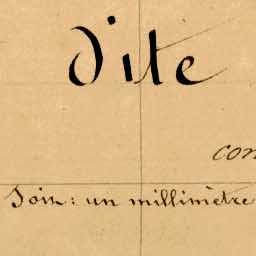 dite
con
Soit: un millimètre